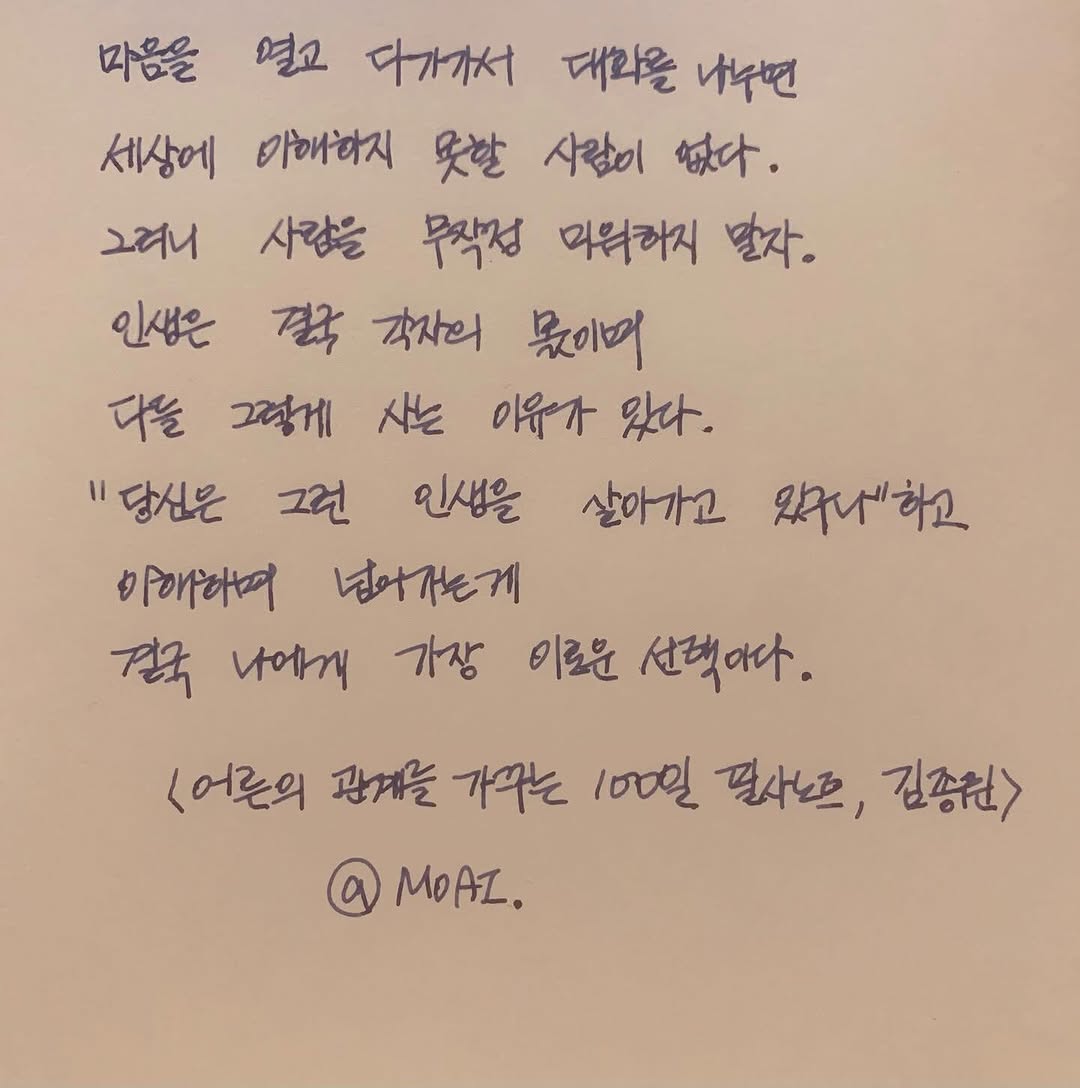 마음을 열고 다가가서 대화를 나누면
세상에 이해하지 못할 사람이 없다.
그러니 사람을 무작정 미워하지 말자.
인생은 결국 각자의 몫이며
다들 그렇게 사는 이유가 있다.
"당신은 그런 인생을 살아가고 있구나"하고
이해하며 넘어가는게
결국 나에게 가장 이로운 선택이다.
<어른의 관계를 가꾸는 100일 필사노트, 김종원>
@MOAI.